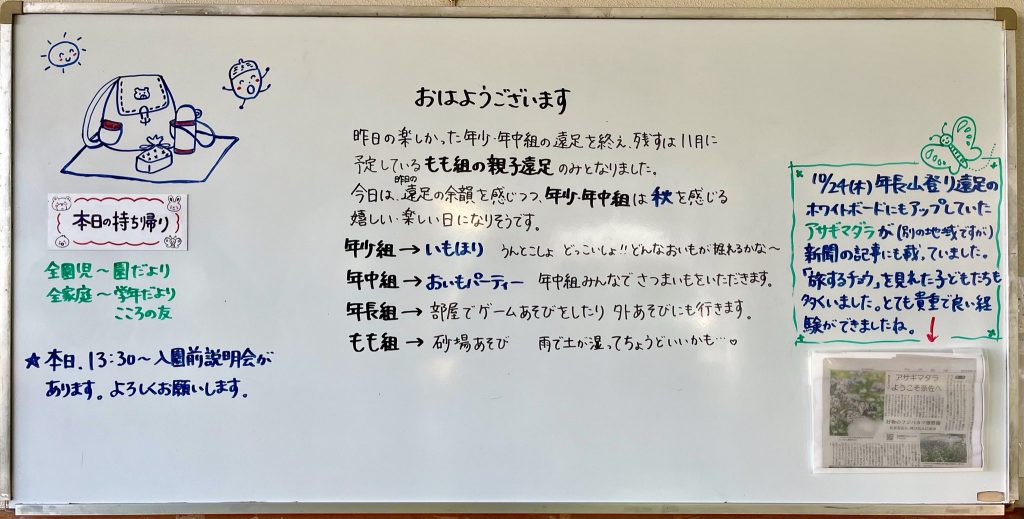 おはようございます
昨日の楽しかった年少・年中組の遠足を終え、残すは11月に
予定しているもも組の親子遠足のみとなりました。
今日は、昨日の遠足の余韻を感じつつ、年少・年中組は秋を感じる
嬉しい・楽しい日になりそうです。
年少組→いもほり うんとこしょ どっこいしょ!!どんなおいもが掘れるかな～
年中組→おいもパーティー 年中組みんなでさつまいもをいただきます。
年長組→部屋でゲームあそびをしたり外あそびにも行きます。
もも組→砂場あそび 雨で土が湿ってちょうどいいかも…♡
本日の持ち帰り
全園児～園だより
全家庭～学年だより
こころの友
★本日、13:30～入園前説明会が
あります。よろしくお願いします。
10/24(木)年長山登り遠足の
ホワイトボードにもアップしていた
アサギマダラが(別の地域ですが)
新聞の記事にも載っていました。
「旅するチョウ」を見れた子どもたちも
多くいました。とても貴重で良い経
験ができましたね。↓
アサギマダラ
ようこそ奈佐へ